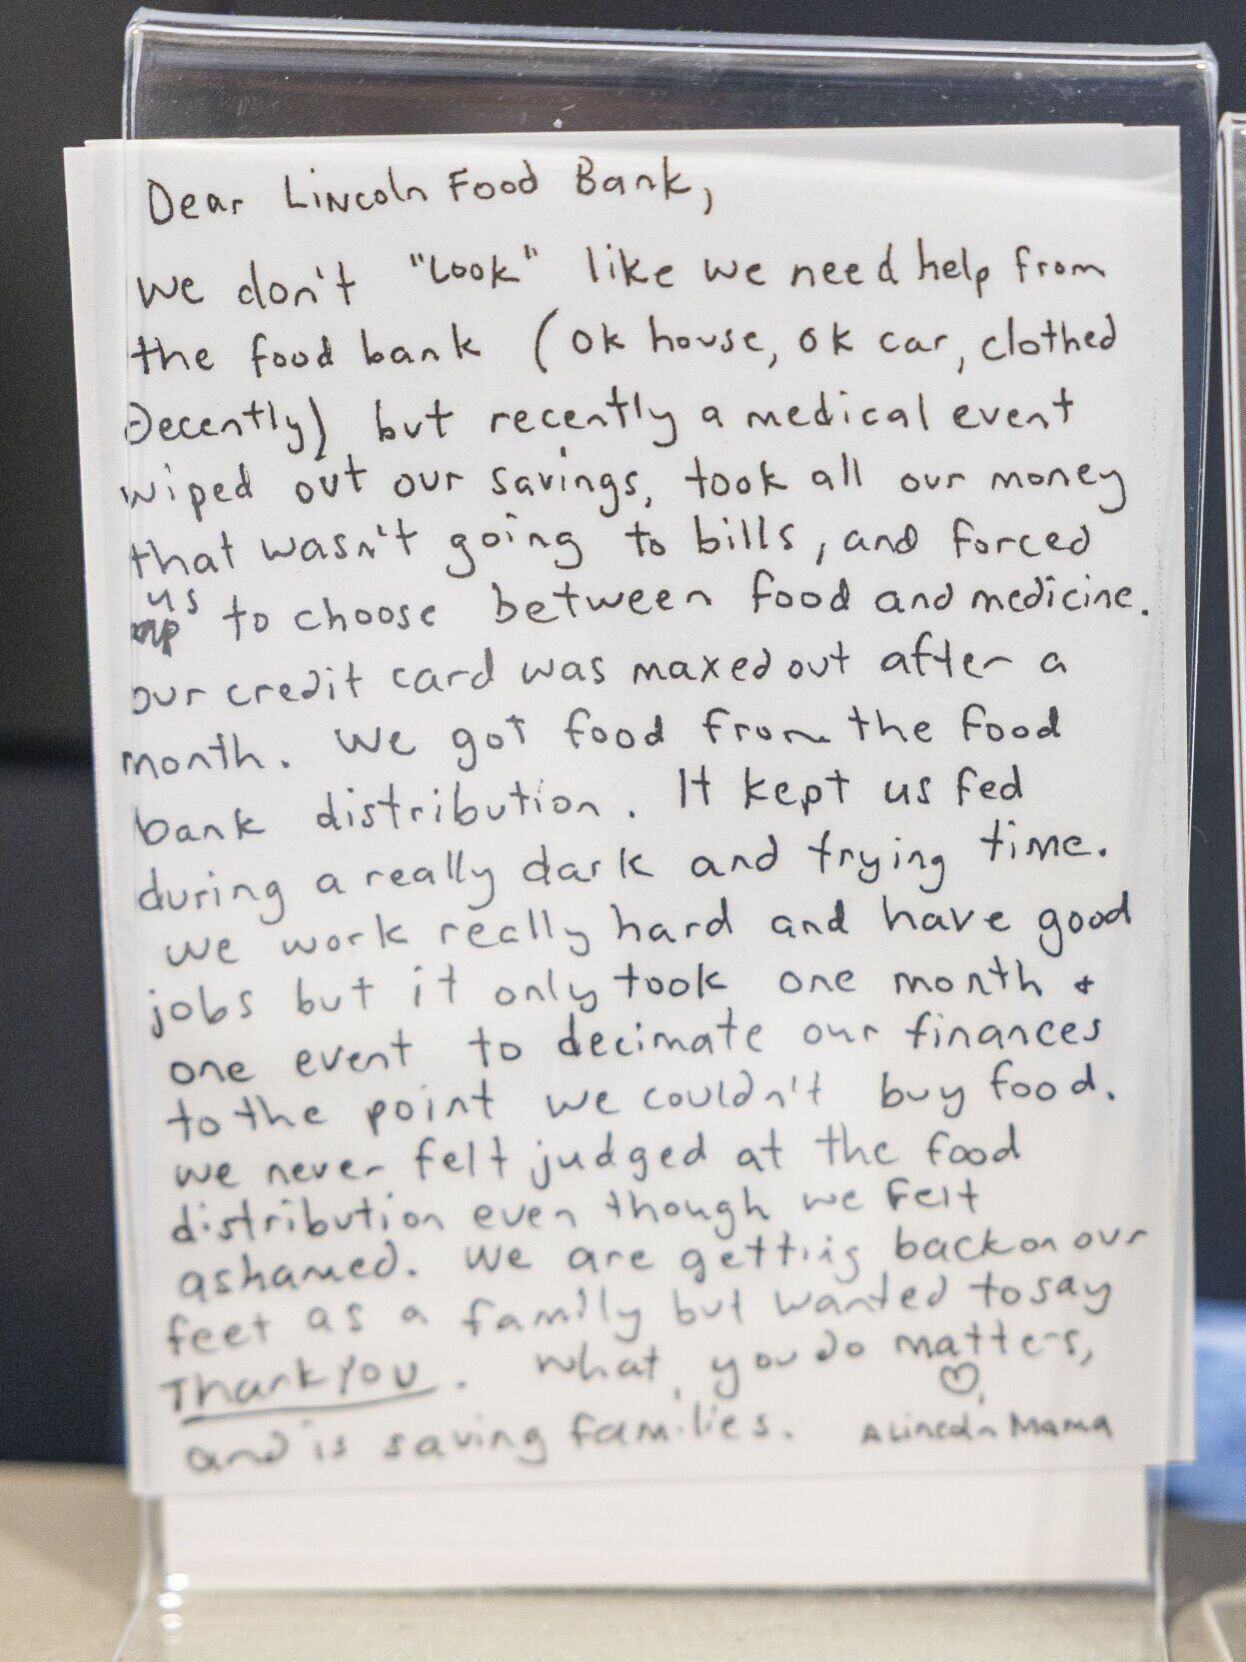 Dear Lincoln Food Bank,
We don't "Look" like we need help from
the food bank (ok house, ok car, clothed
Decently) but recently a medical event
wiped out our savings, took all our money
that wasn't going to bills, and forced
us to choose between food and medicine.
our credit card was maxed out after a
month. We got food from the food
bank distribution. It kept us fed
during a really dark and trying time.
we work really hard and have good
jobs but it only took one month &
one event to decimate our finances
to the point we couldn't buy food.
we never felt judged at the food
distribution even though we felt
ashamed. We are getting back on our
feet as a family but wanted to say
Thank You. What you do matters,
and is saving families. ♡, A Lincoln Mama